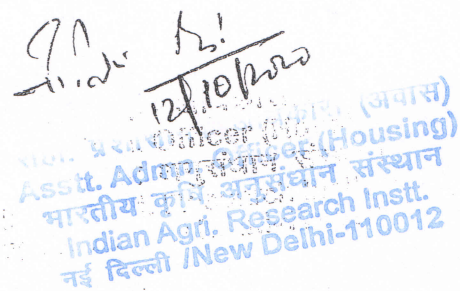 12/10/2020
सहा. प्रशासनिक अधिकारी (आवास)
Asstt. Admn. Officer (Housing)
भारतीय कृषि अनुसंधान संस्थान
Indian Agri. Research Instt.
नई दिल्ली /New Delhi-110012